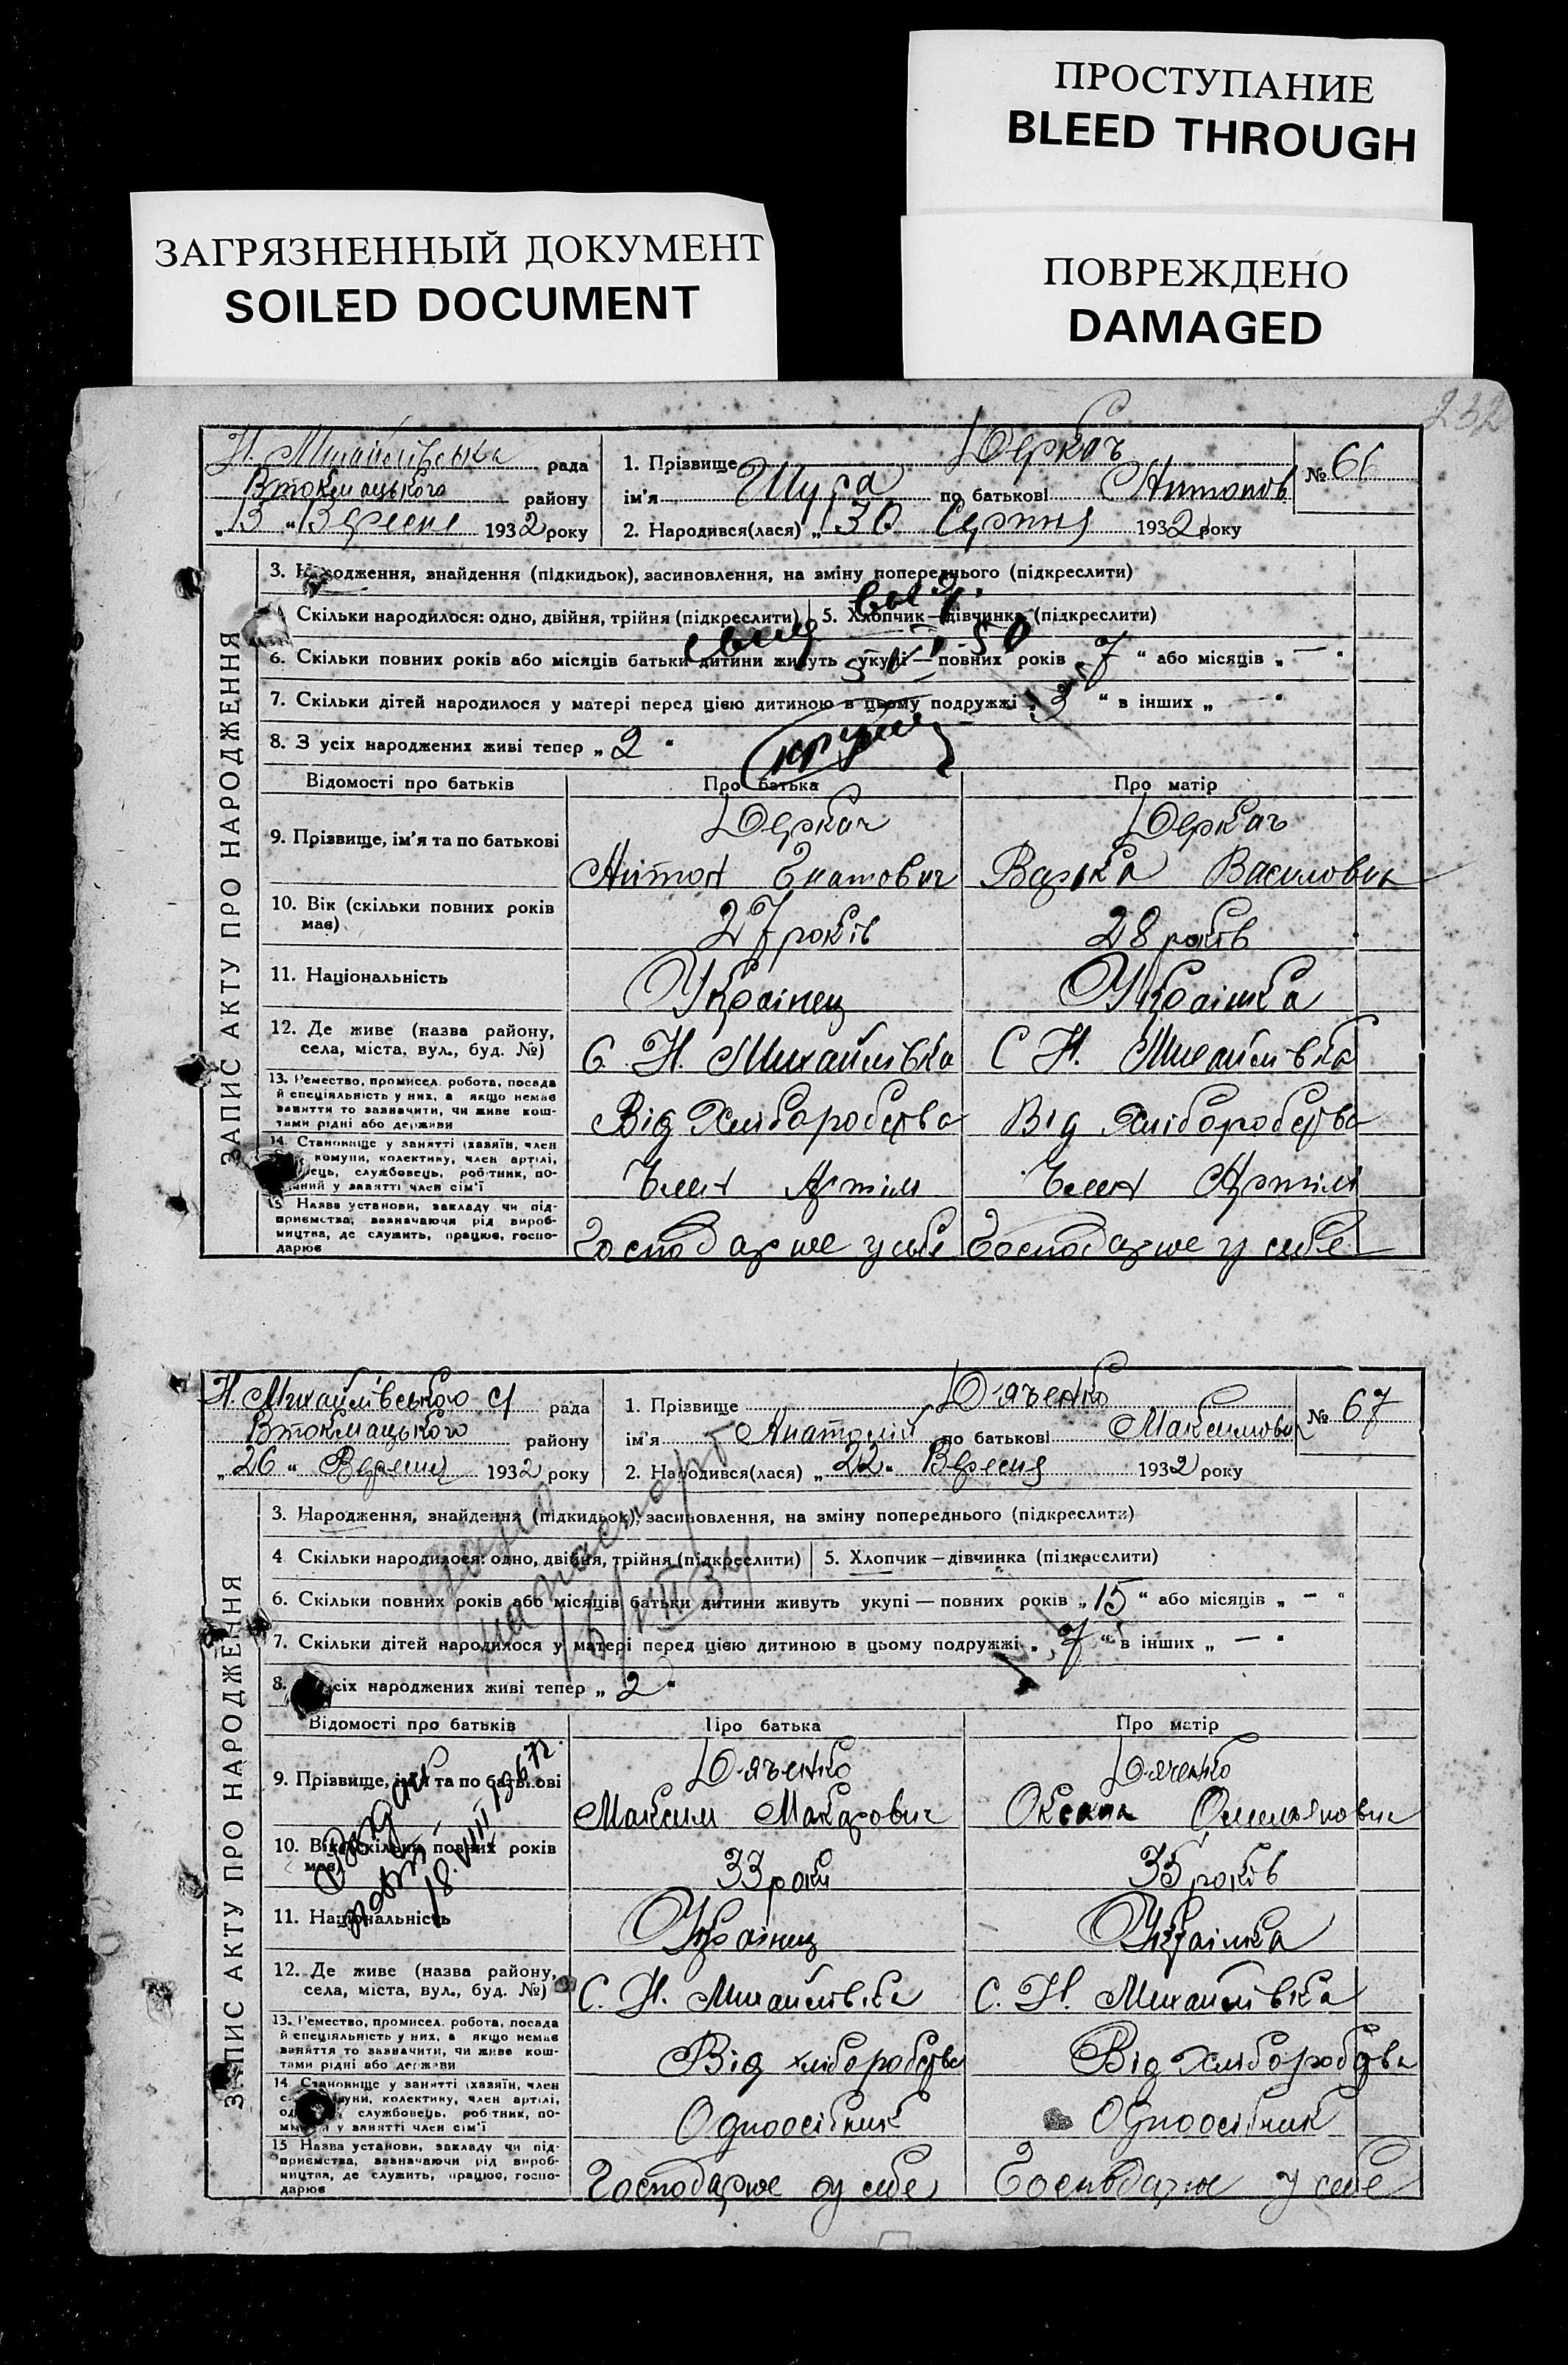 ПРОСТУПАНИЕ
BLEED THROUGH
ЗАГРЯЗНЕННЫЙ ДОКУМЕНТ
SOILED DOCUMENT
ПОВРЕЖДЕНО
DAMAGED
232
ЗАПИС АКТУ ПРО НАРОДЖЕННЯ
Н. Михайлівська рада
Втокмацького району
„13 “ Вересня 1932 року
1. Прізвище Деркачъ
№ 66
ім'я Шура по батькові Антонов
2. Народився(лася) „30 Серпня 1932 року
3. Народження, знайдення (підкидьок), засиновлення, на зміну попереднього (підкреслити)
Скільки народилося: одно, двійня, трійня (підкреслити) 5. Хлопчик—дівчинка (підкреслити)
6. Скільки повних років або місяців батьки дитини живуть укупі — повних років „7 “ або місяців „ — “
7. Скільки дітей народилося у матері перед цією дитиною в цьому подружжі „3 “ в інших „ — “
8. З усіх народжених живі тепер „2 “
Відомості про батьків Про батька Про матір
9. Прізвище, ім'я та по батькові
Деркач
Антон Гнатович
Деркачъ
Варка Василовна
10. Вік (скільки повних років має)
27 років 28 років
11. Національність Українец Українка
12. Де живе (назва району,
села, міста, вул., буд. №)
С. Н. Михайлівка С Н. Михайлівка
13. Ремество, промисел, робота, посада
й спеціяльність у них, а якщо немає
заняття то зазначити, чи живе кош-
тами рідні або держави
Від Хліборобства Від Хліборобства
14. Становище у занятті (хазяїн, член
комуни, колективу, член артілі,
службовець, робітник, по-
у занятті член сім'ї
Член Артіли Член Артіли
15 Назва установи, закладу чи під-
приємства, зазначаючи рід вироб-
ництва, де служить, працює, госпо-
дарює
Господарює у себе Господарює у себе
ЗАПИС АКТУ ПРО НАРОДЖЕННЯ
Н. Михайлівського рада
Втокмацького району
„26 “ Вересня 1932 року
1. Прізвище Дяченко
№ 67
ім'я Анатолий по батькові Максимович
2. Народився(лася) „22 “ Вересня 1932 року
3. Народження, знайдення (підкидьок), засиновлення, на зміну попереднього (підкреслити)
4 Скільки народилося: одно, двійня, трійня (підкреслити) 5. Хлопчик—дівчинка (підкреслити)
6. Скільки повних років або місяців батьки дитини живуть укупі — повних років „15 “ або місяців „ — “
7. Скільки дітей народилося у матері перед цією дитиною в цьому подружжі „7 “ в інших „ — “
8. усіх народжених живі тепер „2 “
Відомості про батьків Про батька Про матір
9. Прізвище, ім'я та по батькові
Дяченко
Максим Макарович
Дяченко
Оксана Омеляновна
10. Вік (скільки повних років має)
33 роки 35 років
11. Національність Українец Українка
12. Де живе (назва району,
села, міста, вул., буд. №)
С. Н. Михайлівка С. Н. Михайлівка
13. Ремество, промисел, робота, посада
й спеціяльність у них, а якщо немає
заняття то зазначити, чи живе кош-
тами рідні або держави
Від хліборобства Від Хліборобства
14. Становище у занятті (хазяїн, член
комуни, колективу, член артілі,
службовець, робітник, по-
у занятті член сім'ї
Одноосібник Одноосібник
15 Назва установи, закладу чи під-
приємства, зазначаючи рід вироб-
ництва, де служить, працює, госпо-
дарює
Господарює у себе Господарює у себе